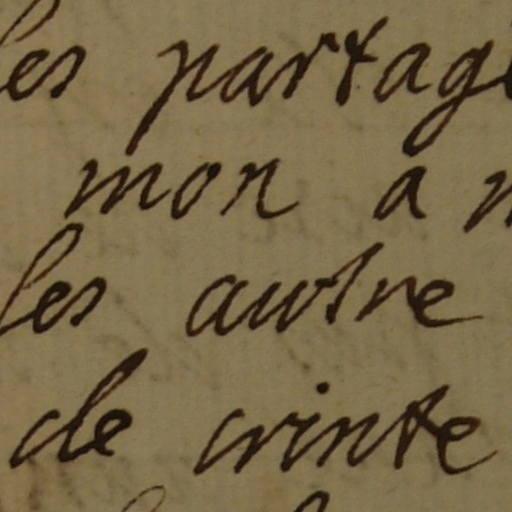 les partage
mon a
les autre
de crinte